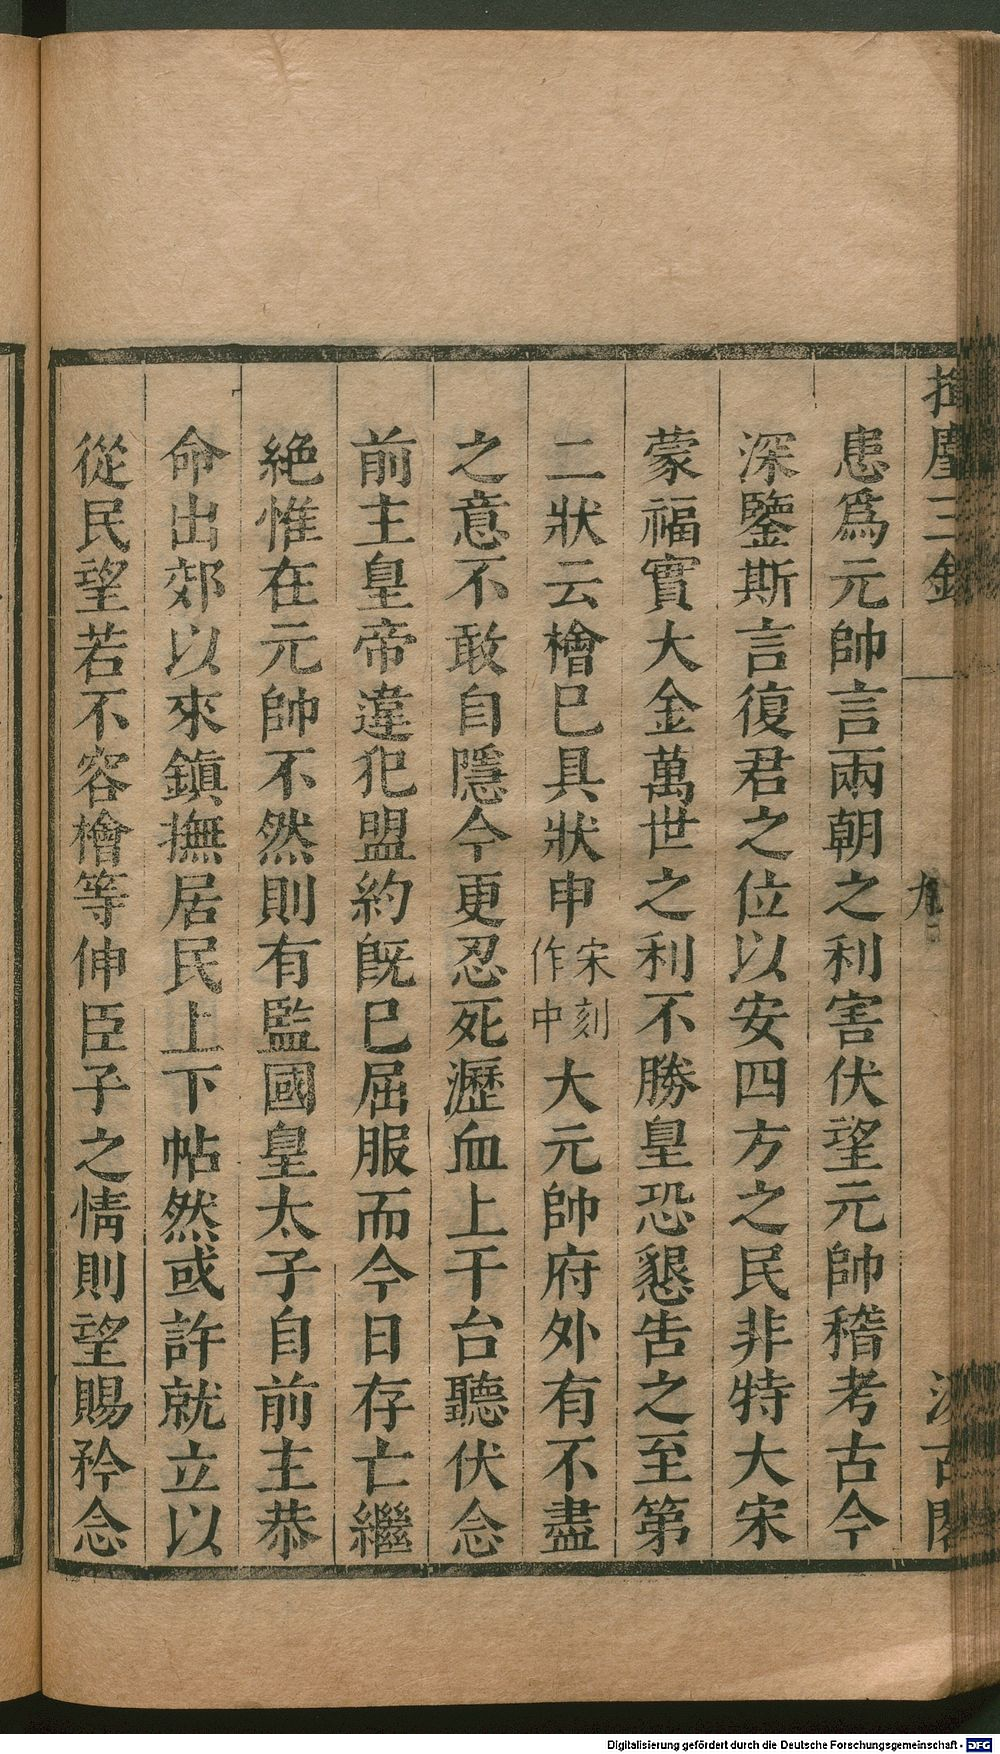 揮麈三錄
九
汲古閣
患爲元帥言兩朝之利害伏望元帥稽考古今
深鑒斯言復君之位以安四方之民非特大宋
蒙福實大金萬世之利不勝皇恐懇告之至第
二狀云檜巳具狀申宋刻作中大元帥府外有不盡
之意不敢自隱今更忍死瀝血上干台聽伏念
前主皇帝違犯盟約旣巳屈服而今日存亡繼
絶惟在元帥不然則有監國皇太子自前主恭
命出郊以來鎭撫居民上下帖然或許就立以
從民望若不容檜等伸臣子之情則望賜矜念
Digitalisierung gefördert durch die Deutsche Forschungsgemeinschaft - DFG